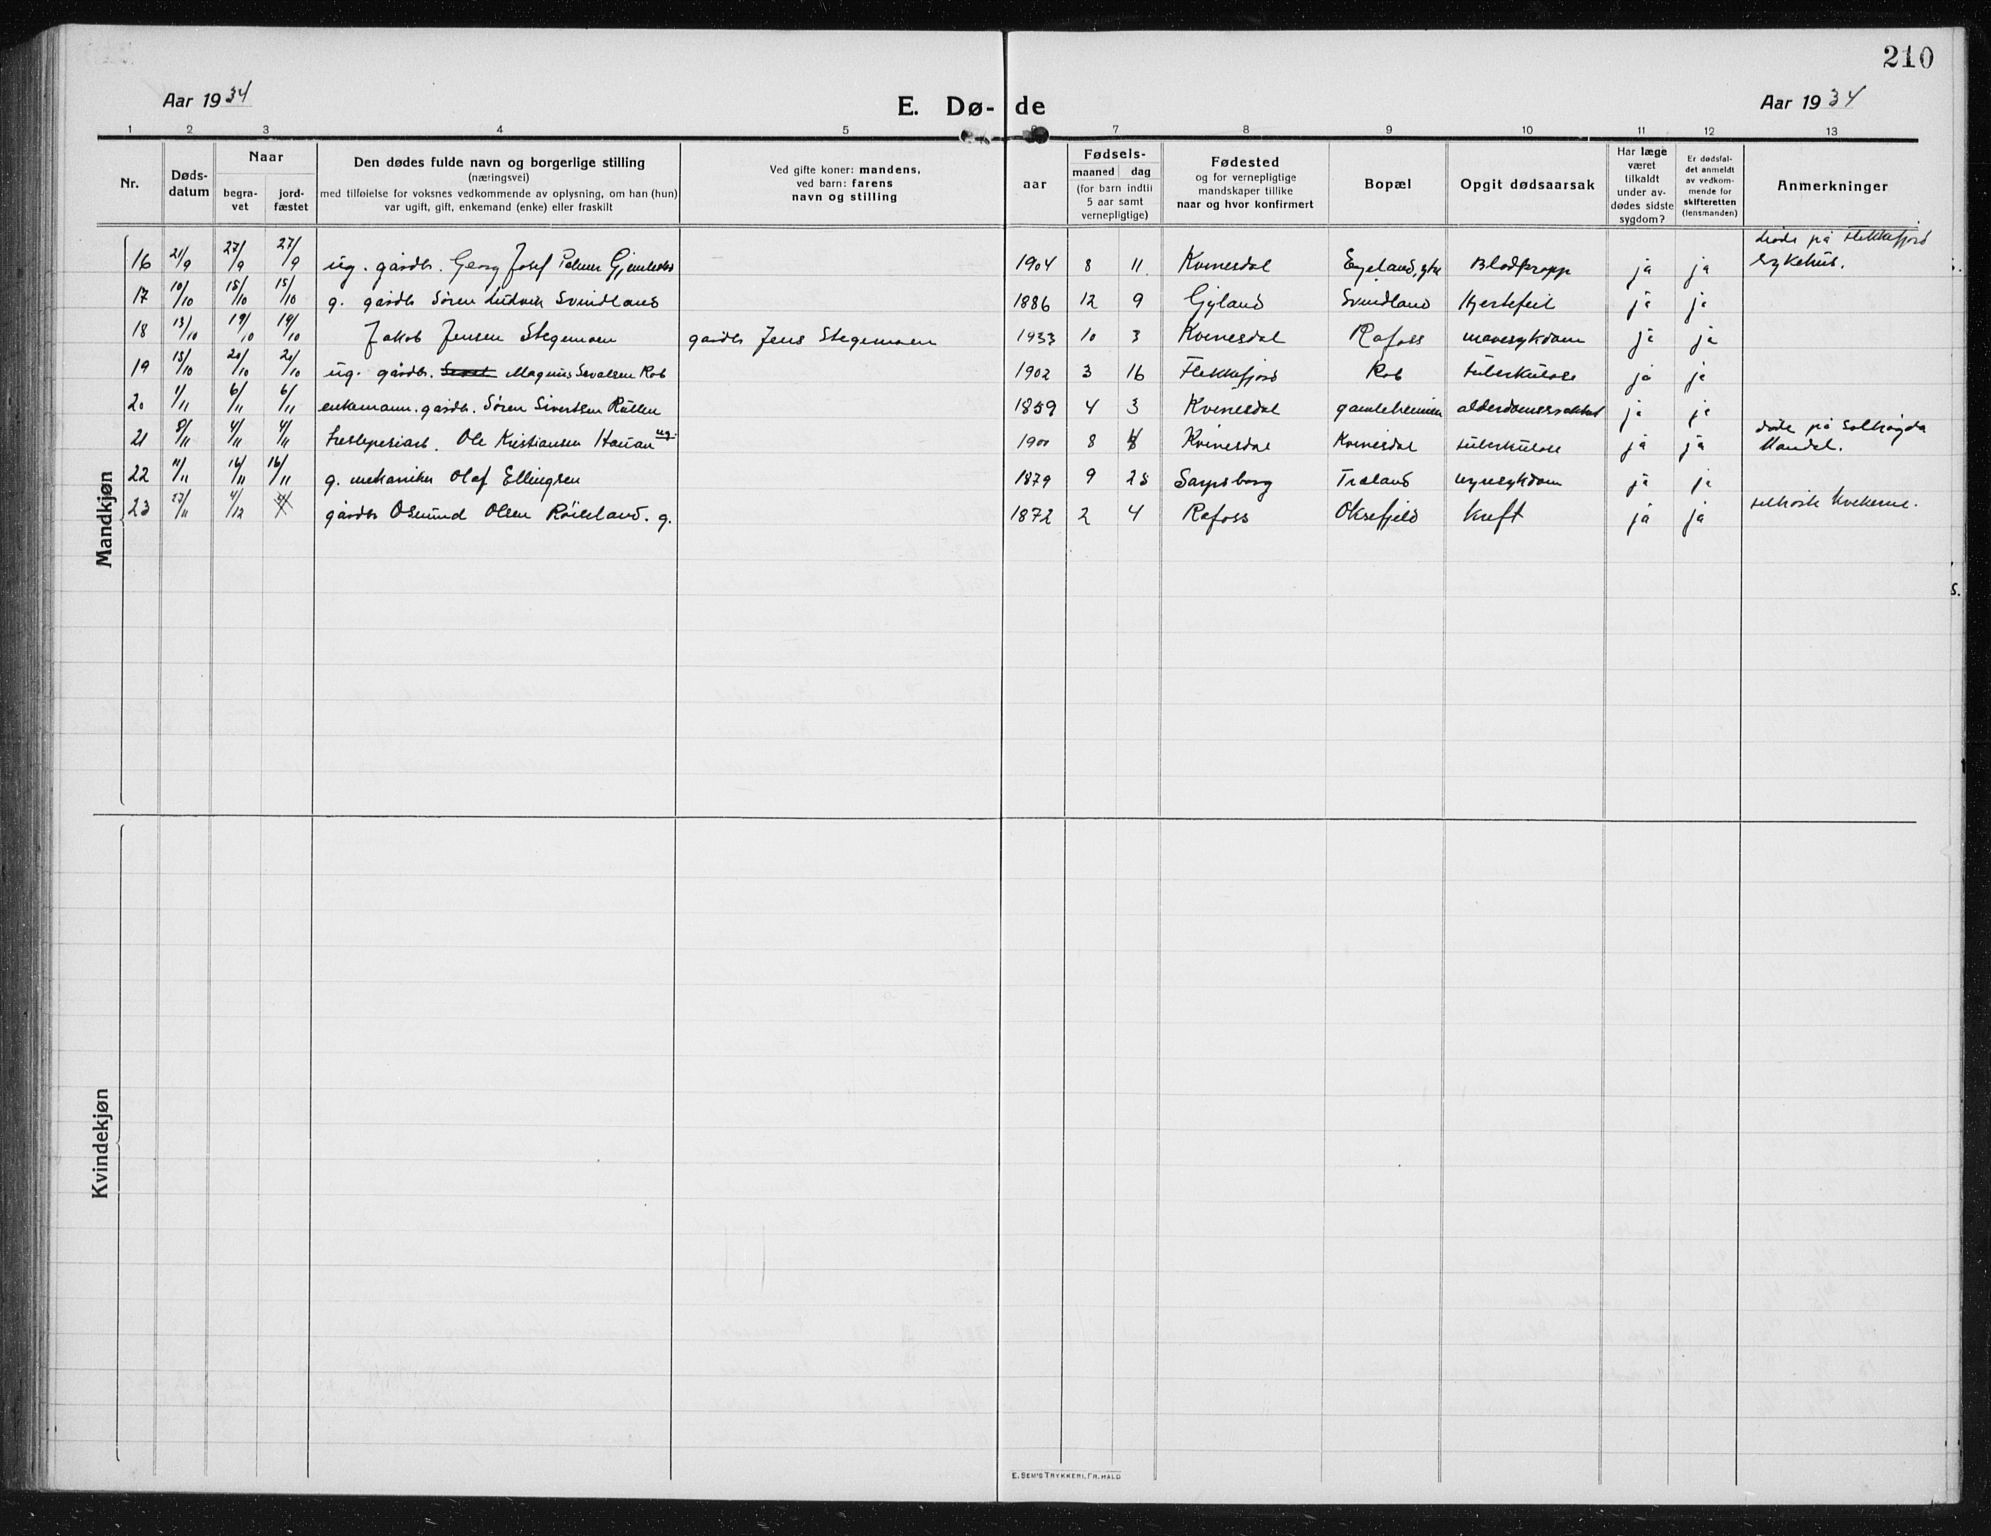 210
Aar 1934
E. Dø- de
Aar 1934
1 2 3 4 5 6 7 8 9 10 11 12 13
Nr.
Døds-
datum
Naar
begra-
vet
jord-
fæstet
Den dødes fulde navn og borgerlige stilling
(næringsvei)
med tilføielse for voksnes vedkommende av oplysning, om han (hun)
var ugift, gift, enkemand (enke) eller fraskilt
Ved gifte koner: mandens,
ved barn: farens
navn og stilling
aar
Fødsels-
maaned dag
(for barn indtil
5 aar samt
vernepligtige)
Fødested
og for vernepligtige
mandskaper tillike
naar og hvor konfirmert
Bopæl
Opgit dødsaarsak
Har læge
været
tilkaldt
under av-
dødes sidste
sygdom?
Er dødsfal-
det anmeldt
av vedkom-
mende for
skifteretten
(lensmanden)
Anmerkninger
Mandkjøn
16 21/9 27/9 27/9 ug. gårdbr. Georg Josef 1904 8 11 Kvinesdal Egeland, Blodpropp ja ja døde på Flekkefjord sykehus.
17 10/10 15/10 15/10 g. gårdbr Sören Ludvik Svindland 1886 12 9 Gyland Svindland Hjertefeil ja ja
18 13/10 19/10 19/10 Jakob Jensen Stegemoen gårdbr Jens Stegemoen 1933 10 3 Kvinesdal Rafoss mavesykdom ja ja
19 15/10 20/10 20/10 ug. gårdbr. Magnus Sevalsen Rob 1902 3 16 Flekkefjord Rob tuberkulose ja ja
20 1/11 6/11 6/11 enkemann. gårdbr. Sören Sivertsen 1859 4 3 Kvinesdal gamleheimen ja ja
21 8/11 4/11 4/11 Ole Kristiansen Hauan ug. 1900 8 Kvinesdal Kvinesdal tuberkulose ja ja døde på Solhøgda Mandal.
22 11/11 16/11 16/11 g. mekaniker Olaf Ellingsen 1879 9 25 Sarpsborg Træland nyresykdom ja ja
23 27/11 4/12 gårdbr Osmund Olsen Röiseland. g. 1872 2 4 Rafoss Oksefjeld Kreft ja ja tilhörte Kvekerne.
Kvindekjøn
E. SEM'S TRYKKERI, FR.HALD